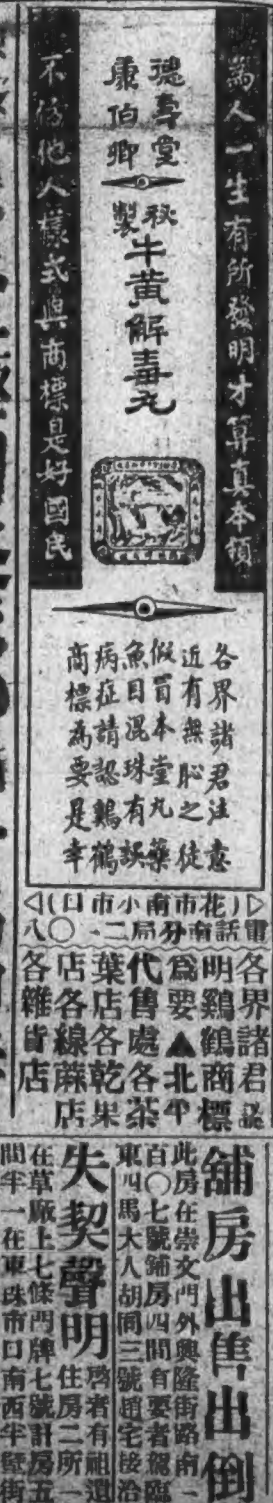 為人一生有所發明才算真本領
德壽堂
康伯卿
秘製
牛黄解毒丸
不仿他人樣式與商標是好國民
各界諸君注意
近有無恥之徒
假冒本堂丸藥
魚目混珠有誤
病症請認鷄鶴
商標為要是幸
▷(花市南小市口)◁
電話南分局二一〇八
各界諸君認
明鷄鶴商標
爲要▲北平
代售處各茶
葉店各乾果
店各線蔴店
各雜貨店
舖房出售出倒
此房在崇文門外興隆街路南一
百〇七號鋪房四間自要者駕臨
東四馬大人胡同三號趙宅接洽
失契聲明
啓者有祖遺
住房二所一
在草廠上七條門牌七號計房五
間半一在東珠市口南西半壁街